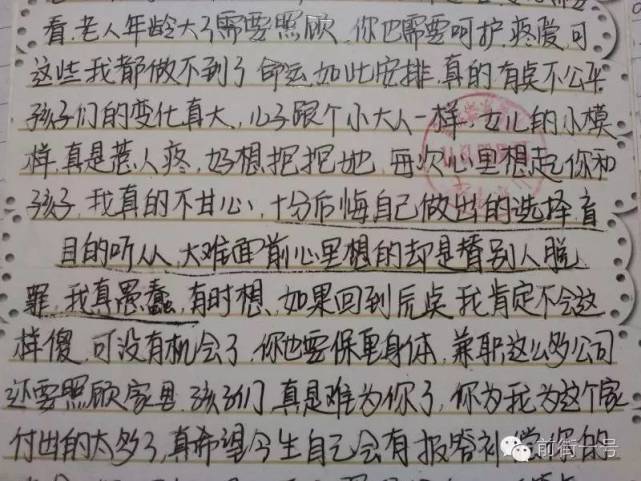 看.老人年龄大了需要照顾.你也需要呵护.疼爱.可
这些我都做不到了命运如此安排.真的有点不公平
孩子们的变化真大.儿子跟个小大人一样.女儿的小模
样.真是惹人疼.好想抱抱她.每次心里想起你和
孩子.我真的不甘心.十分后悔自己做出的选择盲
目的听从.大难面前心里想的却是替别人脱
罪.我真愚蠢.有时想.如果回到原点我肯定不会这
样傻.可没有机会了.你也要保重身体.兼职这么多公司
还要照顾家里.孩子们真是难为你了.你为我为这个家
付出的太多了.真希望今生自己会有报答补偿你的
前街一号